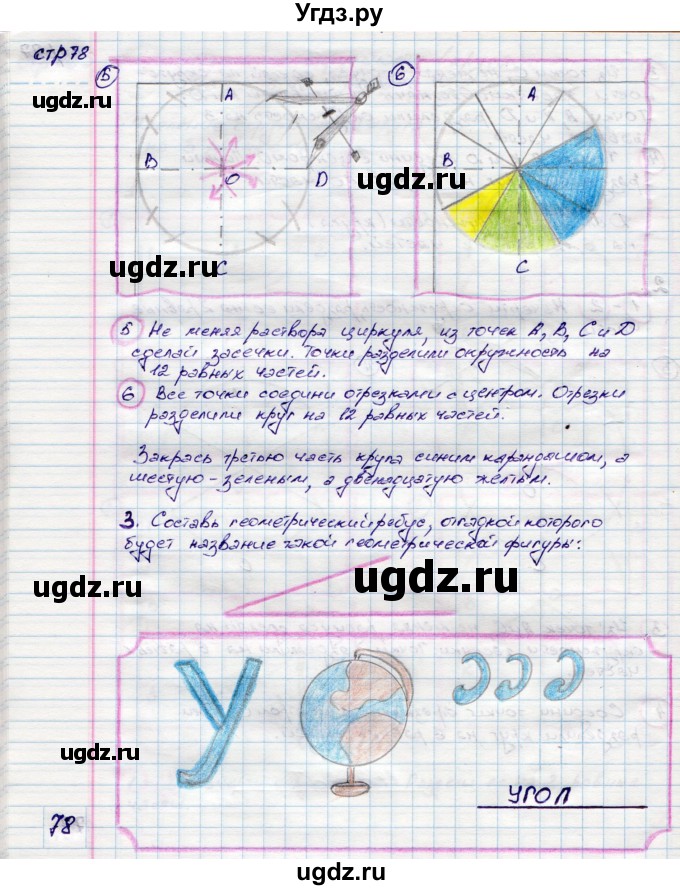 Угдз.ру
стр 78
5
6
ugdz.ru
A
B
O
D
C
A
B
C
ugdz.ru
ugdz.ru
ugdz.ru
5 Не меняя раствора циркуля, из точек A, B, C и D
сделай засечки. Точки разделили окружность на
12 равных частей.
6 Все точки соедини отрезками с центром. Отрезки
разделили круг на 12 равных частей.
ugdz.ru
ugdz.ru
Закрась третью часть круга синим карандашом, а
шестую - зеленым, а двенадцатую желтым.
3. Составь геометрический ребус, отгадкой которого
будет название такой геометрической фигуры:
ugdz.ru
ugdz.ru
У
,,,
ugdz.ru
УГОЛ
78
ugdz.ru
ugdz.ru